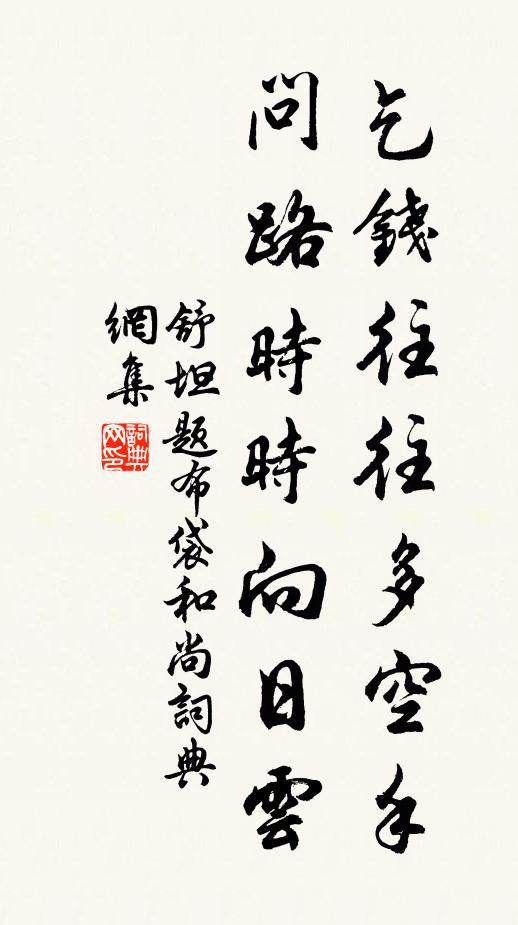 乞錢往往多空手
問路時時向日雲
舒坦題布袋和尚詞典
網集
詞典
网印